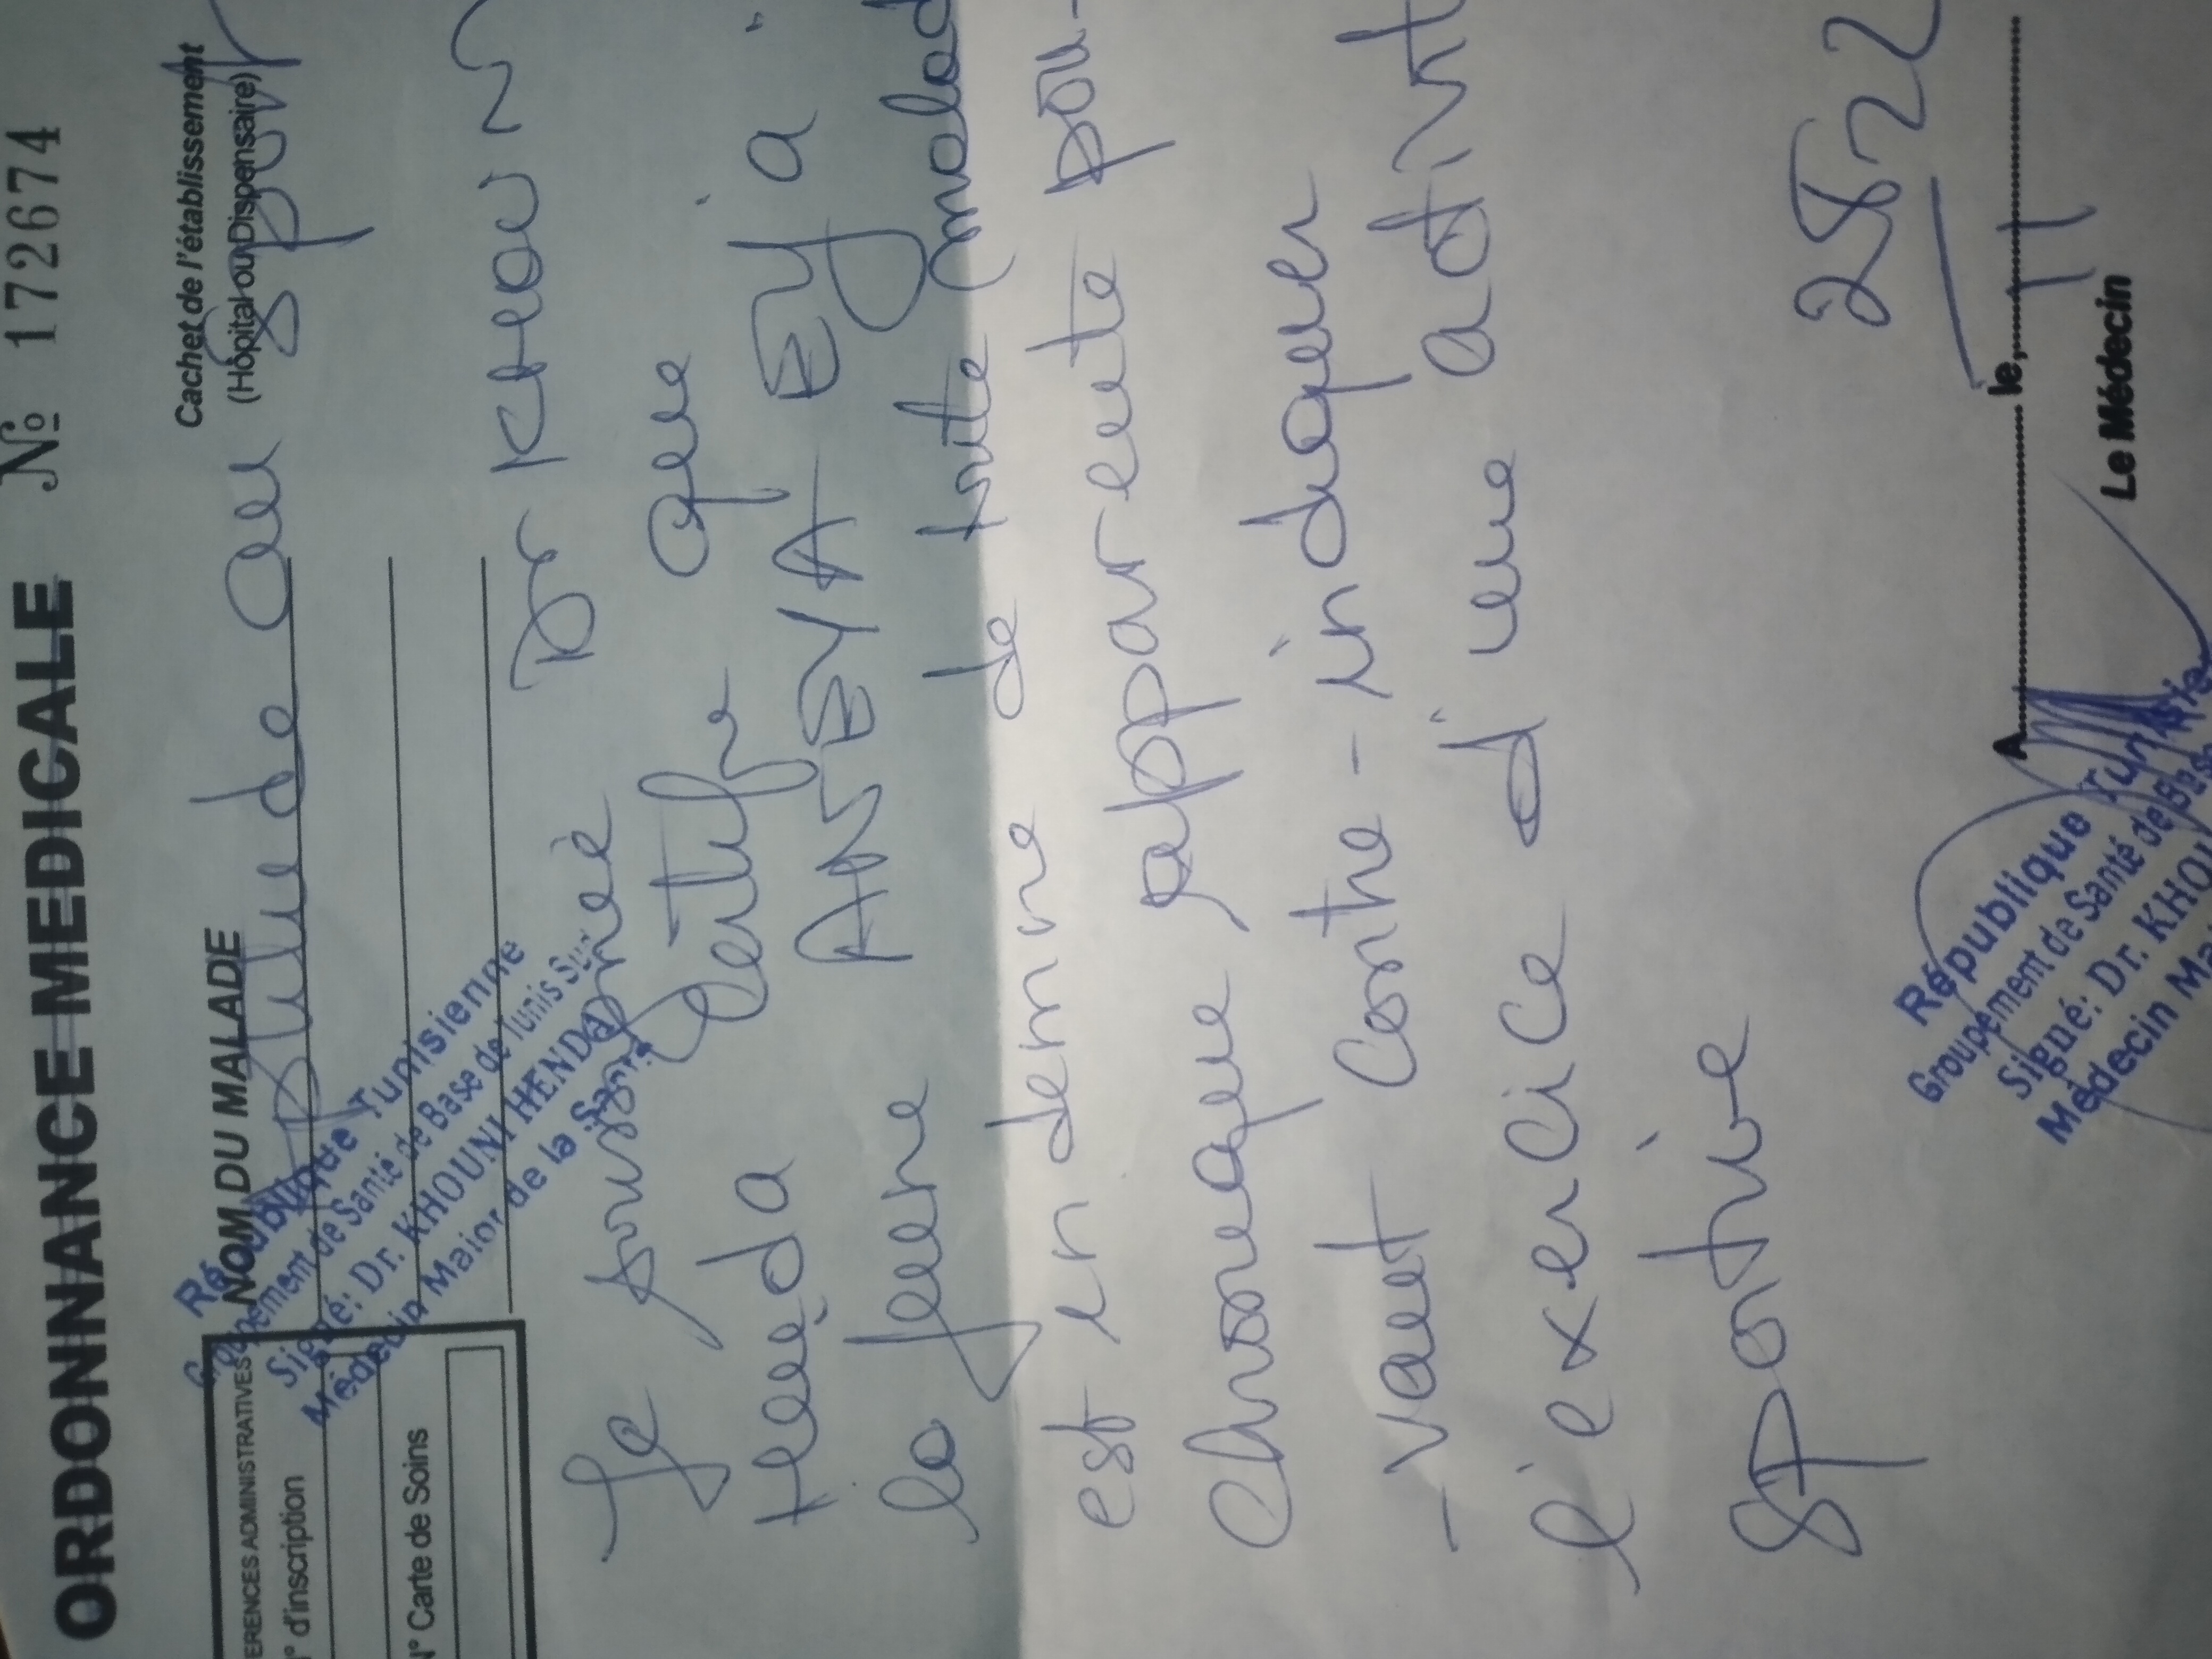 ORDONNANCE MEDICALE № 172674
Cachet de l'établissement
(Hôpital ou Dispensaire)
NOM DU MALADE
Aptitude au sport
République Tunisienne
Groupement de Santé de Base de Tunis Sud
Signé: Dr. KHOUNI HENDA
Médecin Major de la Santé
ERENCES ADMINISTRATIVES
N° d'inscription
N° Carte de Soins
Je soussignée Dr KHOUN
Henda certifie que
la jeune ANEYA EYA
est en demne de toute (malad
chronique apparente pou-
-vant contre-indiquer
l'exercice d'une activit
sportive
A le,
Le Médecin
République Tunisie
Groupement de Santé de Bas
Signé: Dr. KHOU
Médecin Ma